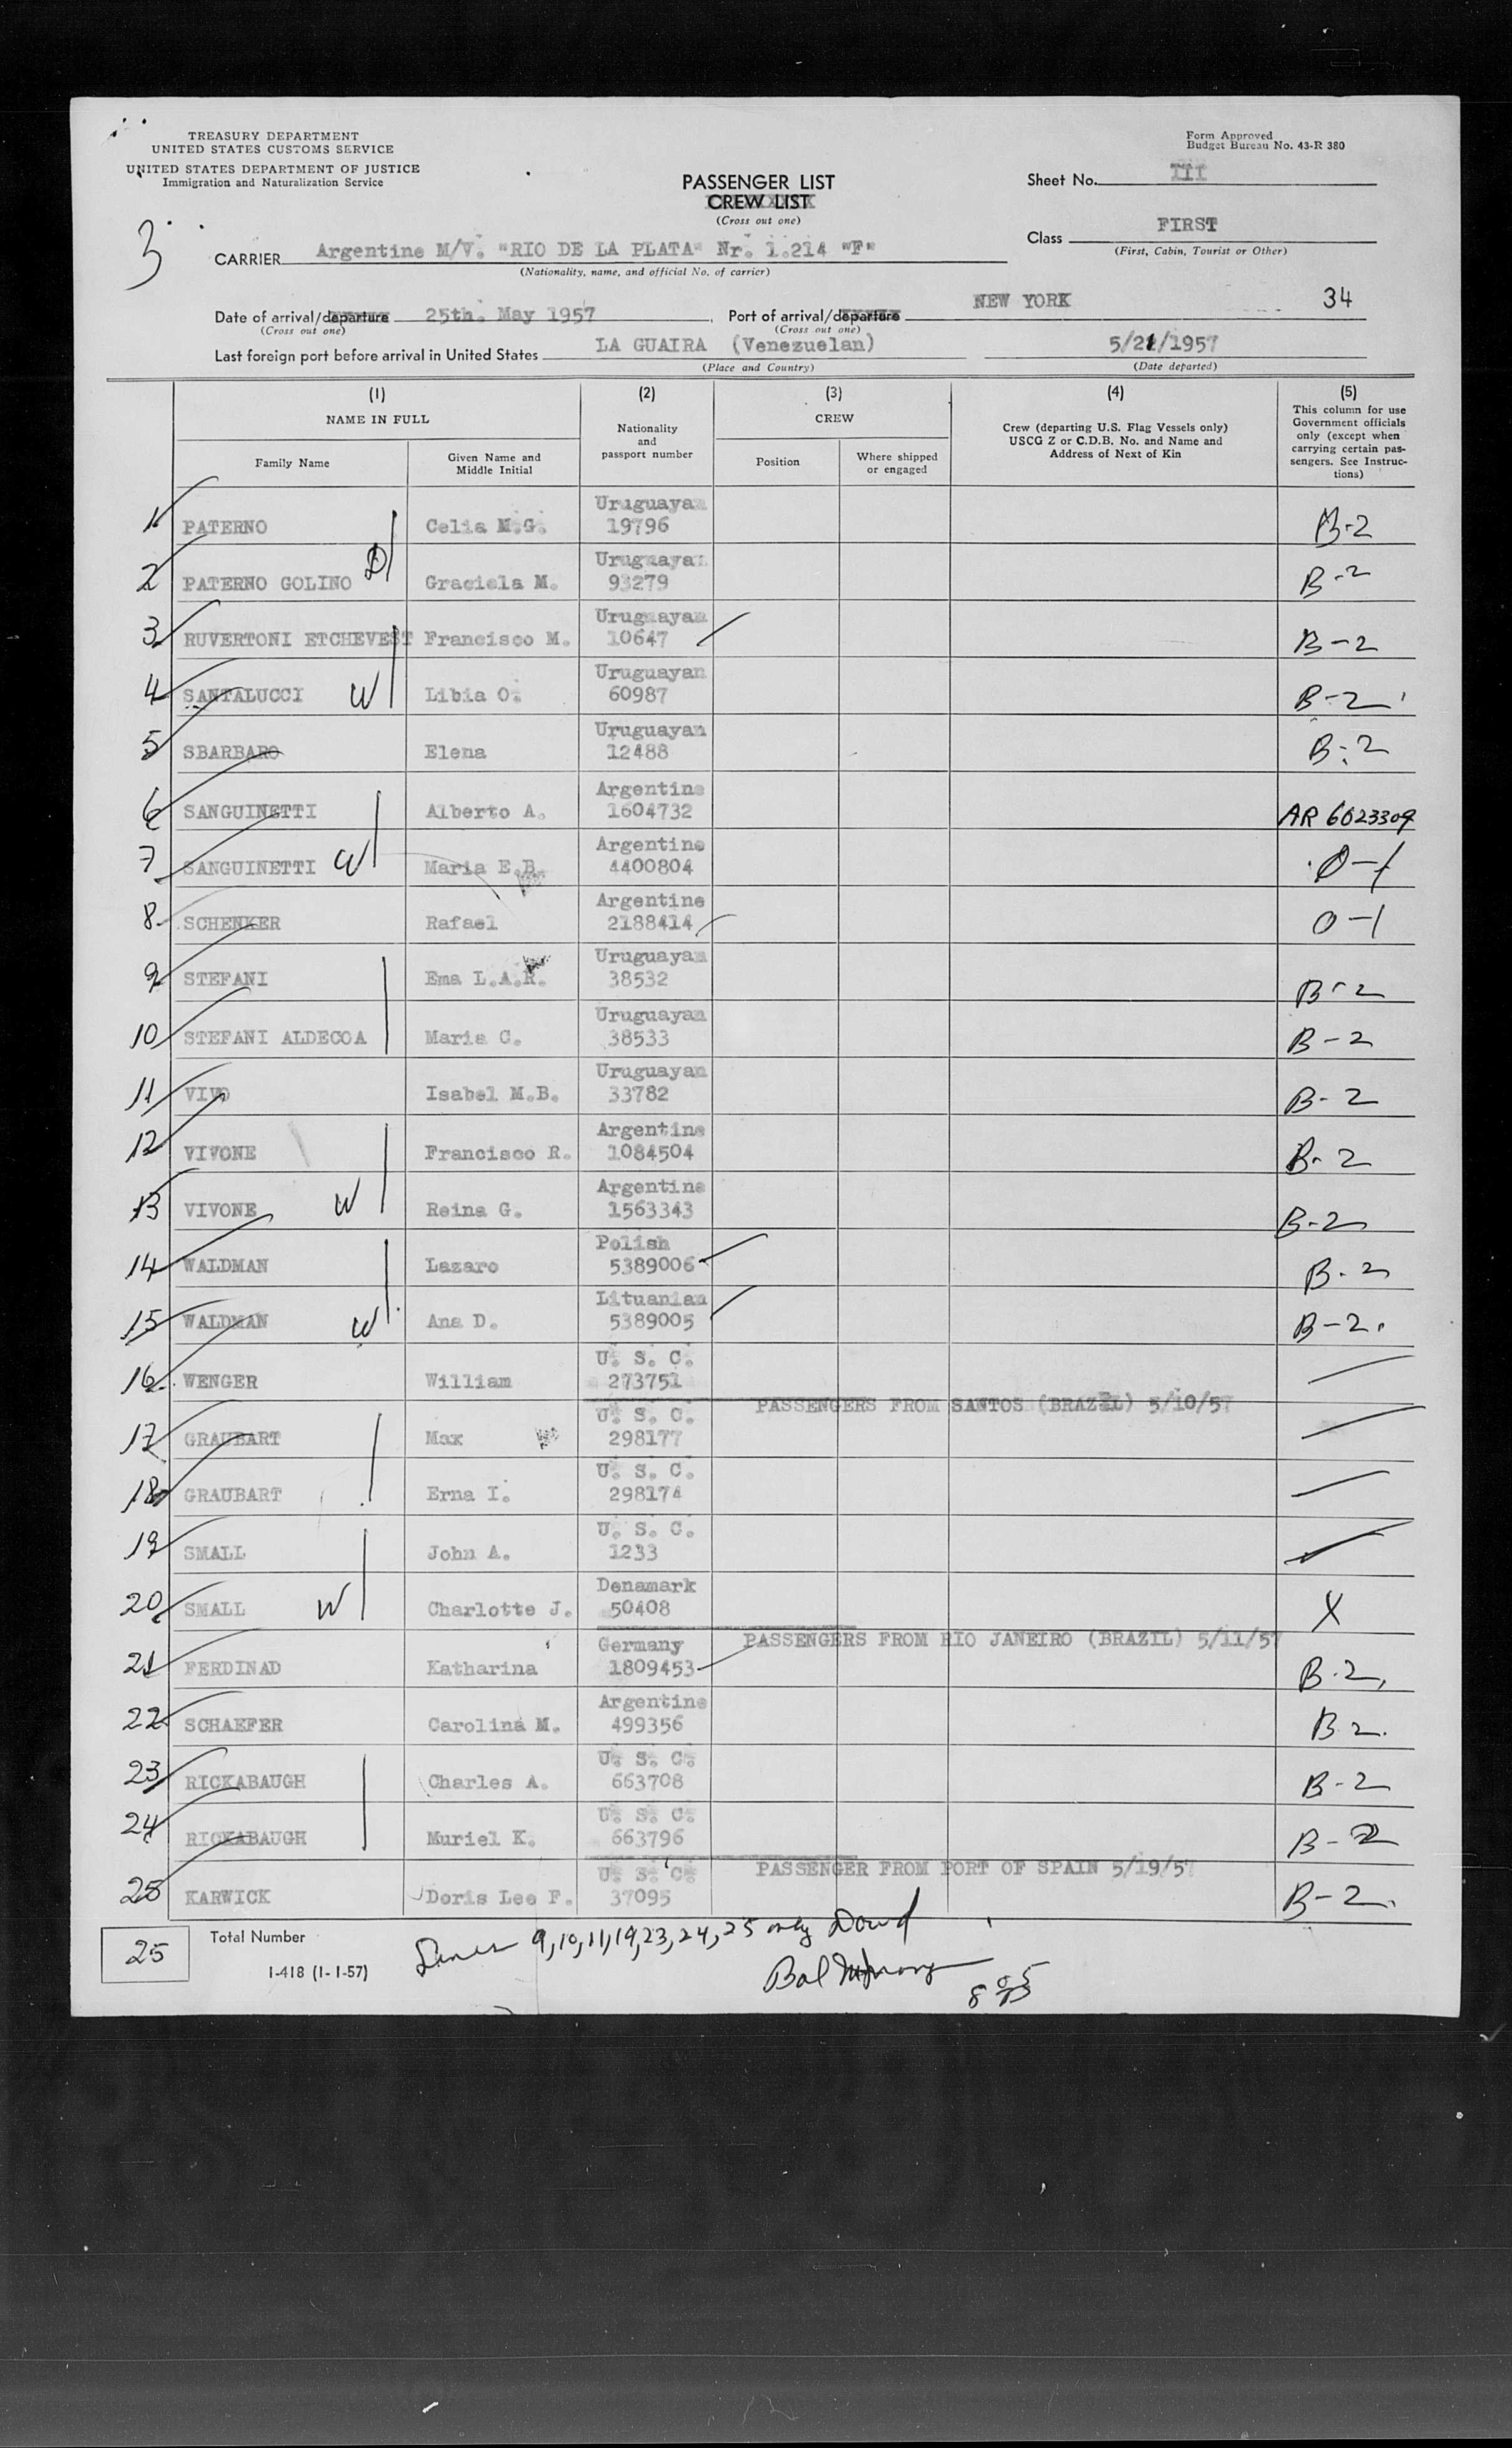 TREASURY DEPARTMENT
UNITED STATES CUSTOMS SERVICE
UNITED STATES DEPARTMENT OF JUSTICE
Immigration and Naturalization Service
Form Approved
Budget Bureau No. 43-R 380
PASSENGER LIST
CREW LIST
(Cross out one)
Sheet No. III
3
CARRIER Argentine M/V. "RIO DE LA PLATA" Nr. 1.214 "F"
(Nationality, name, and official No. of carrier)
Class FIRST
(First, Cabin, Tourist or Other)
Date of arrival/departure 25th. May 1957, Port of arrival/departure NEW YORK 34
(Cross out one) (Cross out one)
Last foreign port before arrival in United States LA GUAIRA (Venezuelan) 5/21/1957
(Place and Country) (Date departed)
(1) (2) (3) (4) (5)
NAME IN FULL Nationality and passport number CREW Crew (departing U.S. Flag Vessels only) USCG Z or C.D.B. No. and Name and Address of Next of Kin This column for use Government officials only (except when carrying certain passengers. See Instructions)
Family Name Given Name and Middle Initial Position Where shipped or engaged
1 PATERNO Celia M.G. Uruguayan 19796 B-2
2 PATERNO GOLINO D Graciela M. Uruguayan 93279 B-2
3 RUVERTONI ETCHEVEST Francisco M. Uruguayan 10647 B-2
4 SANTALUCCI W Libia O. Uruguayan 60987 B-2
5 SBARBARO Elena Uruguayan 12488 B-2
6 SANGUINETTI Alberto A. Argentine 1604732 AR 6023309
7 SANGUINETTI W Maria E.B. Argentine 4400804 O-1
8 SCHENKER Rafael Argentine 2188414 O-1
9 STEFANI Ema L.A.R. Uruguayan 38532 B-2
10 STEFANI ALDECOA Maria C. Uruguayan 38533 B-2
11 VIVO Isabel M.B. Uruguayan 33782 B-2
12 VIVONE Francisco R. Argentine 1084504 B-2
13 VIVONE W Reina G. Argentine 1563343 B-2
14 WALDMAN Lazaro Polish 5389006 B-2
15 WALDMAN W Ana D. Lituanian 5389005 B-2.
16 WENGER William U. S. C. 273751
PASSENGERS FROM SANTOS (BRAZIL) 5/10/57
17 GRAUBART Max U. S. C. 298177
18 GRAUBART Erna I. U. S. C. 298174
19 SMALL John A. U. S. C. 1233
20 SMALL W Charlotte J. Denamark 50408 X
PASSENGERS FROM RIO JANEIRO (BRAZIL) 5/11/57
21 FERDINAD Katharina Germany 1809453 B-2
22 SCHAEFER Carolina M. Argentine 499356 B-2.
23 RICKABAUGH Charles A. U. S. C. 663708 B-2
24 RICKABAUGH Muriel K. U. S. C. 663796 B-2
PASSENGER FROM PORT OF SPAIN 5/19/57
25 KARWICK Doris Lee F. U. S. C. 37095 B-2.
25 Total Number
I-418 (1-1-57)
Lines 9,10,11,19,23,24,25 only
Bal